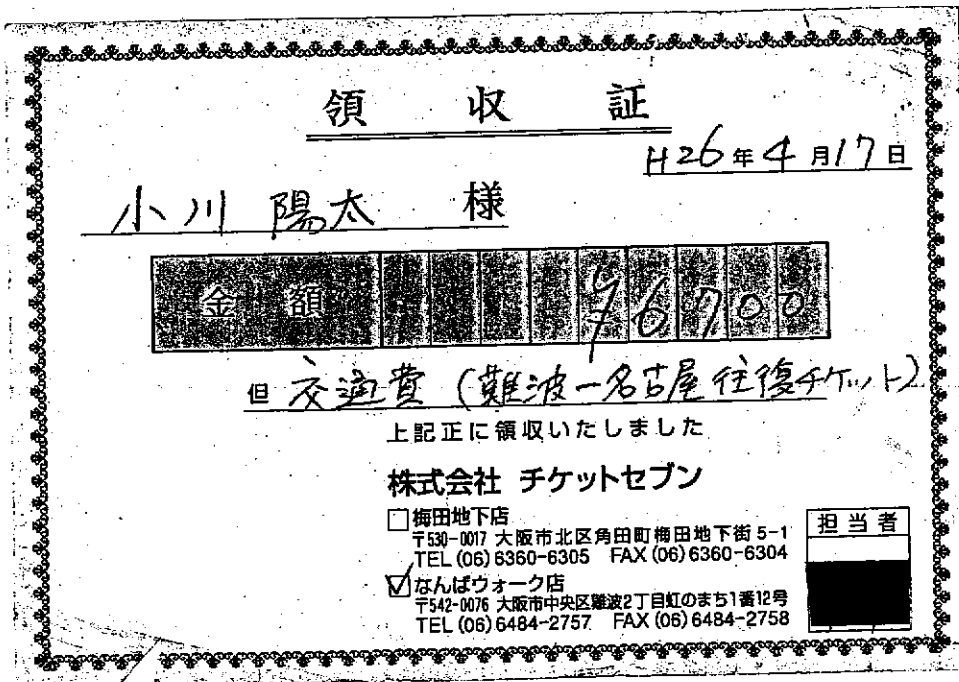 領収証
H26年4月17日
小川 陽太 様
金額 ¥6700
但 交通費 (難波ー名古屋往復チケット)
上記正に領収いたしました
株式会社 チケットセブン
梅田地下店
〒530-0017 大阪市北区角田町梅田地下街5-1
TEL (06)6360-6305 FAX (06)6360-6304
なんばウォーク店
〒542-0076 大阪市中央区難波2丁目虹のまち1番12号
TEL (06)6484-2757 FAX (06)6484-2758
担当者